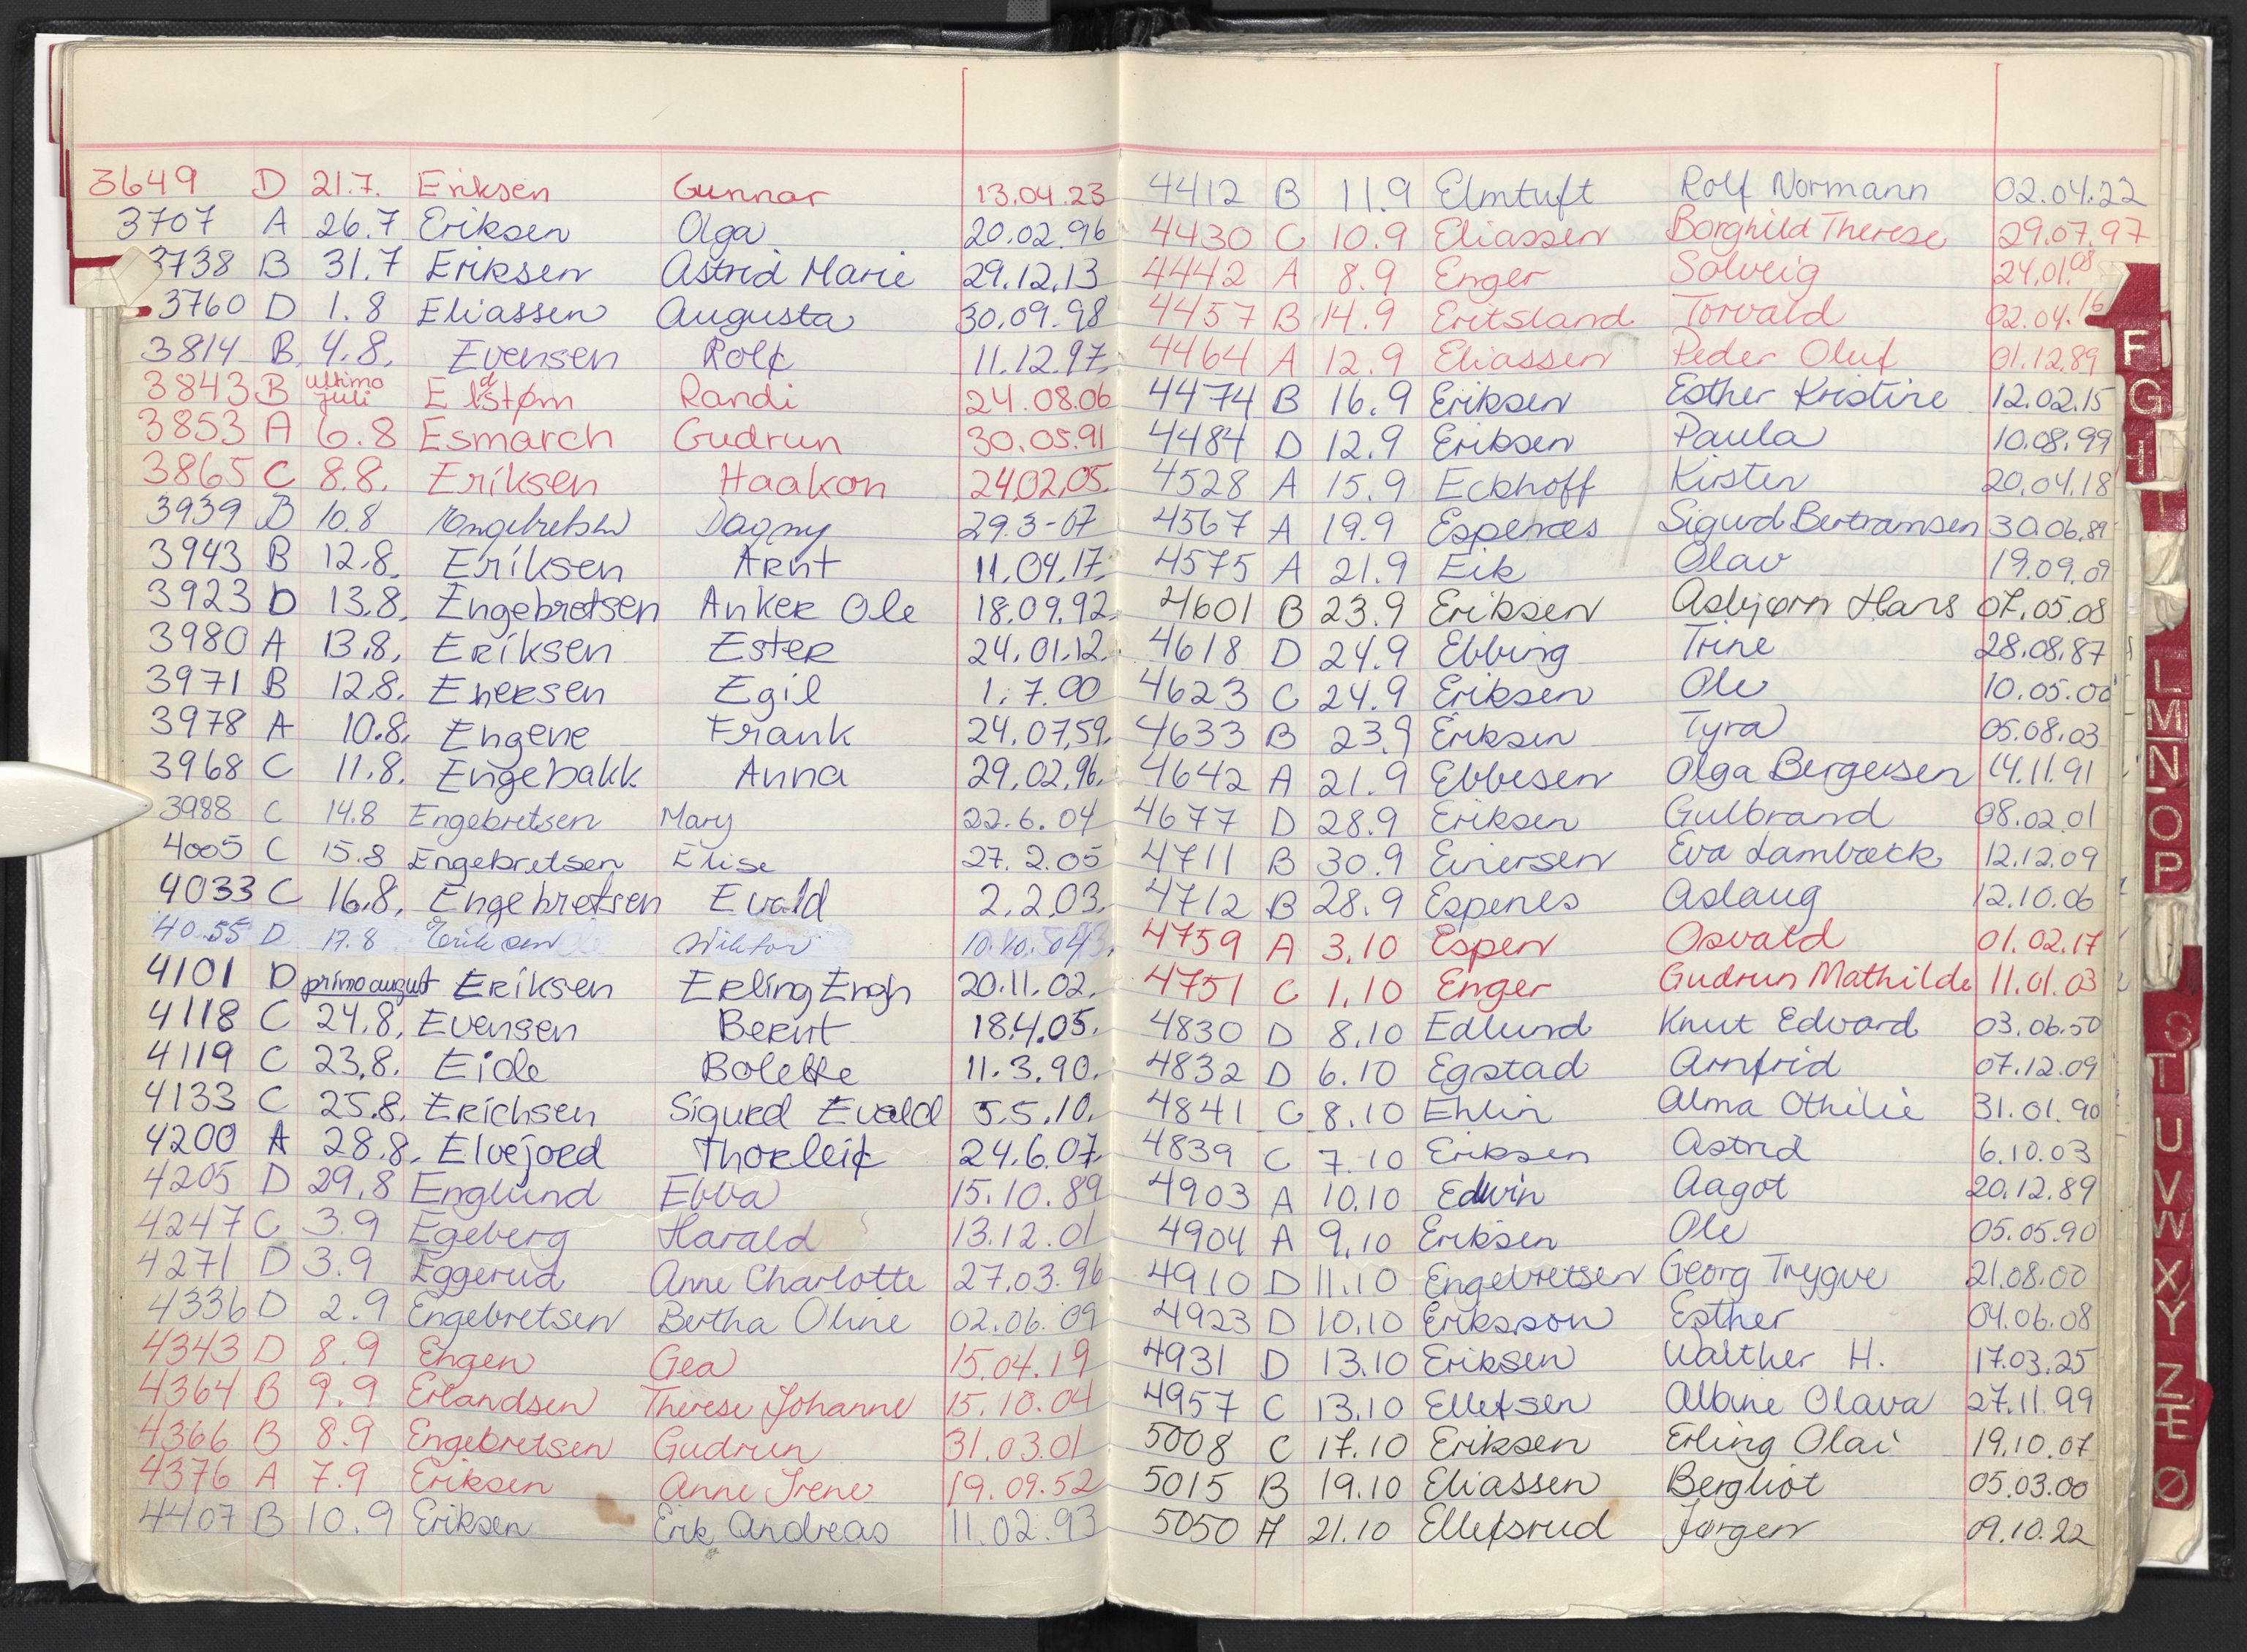 3649 D 21.7. Eriksen Gunnar 13.04.23
3707 A 26.7 Eriksen Olga 20.02.96
3738 B 31.7 Eriksen Astrid Marie 29.12.13
3760 D 1.8 Eliassen Augusta 30.09.98
3814 B. 4.8. Evensen Rolf 11.12.97.
3843 B ultimo juli Eldstøm Randi 24.08.06
3853 A 6.8 Esmarch Gudrun 30.05.91
3865 C 8.8. Eriksen Haakon 24.02.05.
3939 B 10.8 Engebretsen Dagny 29.3-07
3943 B 12.8. Eriksen Arnt 11.04.17.
3923 D 13.8. Engebretsen Anker Ole 18.09.92.
3980 A 13.8. Eriksen Ester 24.01.12.
3971 B 12.8. Enersen Egil 1.7.00
3978 A 10.8. Engene Frank 24.07.59.
3968 C 11.8. Engebakk Anna 29.02.96.
3988 C 14.8 Engebretsen Mary 22.6.04
4005 C 15.8 Engebretsen Elise 27.2.05
4033 C 16.8. Engebretsen Evald 2.2.03.
4055 D 17.8 Eriksen Viktor 10.10.04
4101 D primo august Eriksen Erling Engh 20.11.02.
4118 C 24.8. Evensen Bernt 18.4.05.
4119 C 23.8. Eide Bolette 11.3.90.
4133 C 25.8. Erichsen Sigurd Evald 5.5.10.
4200 A 28.8. Elvejord Thorleif 24.6.07.
4205 D 29.8 Englund Ebba 15.10.89
4247 C 3.9 Egeberg Harald 13.12.01
4271 D 3.9 Eggerud Anne Charlotte 27.03.96
4336 D 2.9 Engebretsen Bertha Oline 02.06.09
4343 D 8.9 Engen Gea 15.04.19
4364 B 9.9 Erlandsen Therese Johanne 15.10.04
4366 B 8.9 Engebretsen Gudrun 31.03.01
4376 A 7.9 Eriksen Anne Irene 19.09.52
4407 B 10.9 Eriksen Erik Andreas 11.02.93
4412 B 11.9 Elmtuft Rolf Normann 02.04.22
4430 C 10.9 Eliassen Borghild Therese 29.07.97
4442 A 8.9 Enger Solveig 24.01.08
4457 B 14.9 Eritsland Torvald 02.04.16
4464 A 12.9 Eliassen Peder Oluf 01.12.89
4474 B 16.9 Eriksen Esther Kristine 12.02.15
4484 D 12.9 Eriksen Paula 10.08.99
4528 A 15.9 Eckhoff Kirsten 20.04.18
4567 A 19.9 Espenæs Sigurd Bertramsen 30.06.89
4575 A 21.9 Eik Olav 19.09.09
4601 B 23.9 Eriksen Asbjørn Hans 07.05.08
4618 D 24.9 Ebbing Trine 28.08.87
4623 C 24.9 Eriksen Ole 10.05.00
4633 B 23.9 Eriksen Tyra 05.08.03
4642 A 21.9 Ebbesen Olga Bergersen 14.11.91
4677 D 28.9 Eriksen Gulbrand 08.02.01
4711 B 30.9 Einersen Eva Lambæck 12.12.09
4712 B 28.9 Espenes Aslaug 12.10.06
4759 A 3.10 Espen Osvald 01.02.17
4751 C 1.10 Enger Gudrun Mathilde 11.01.03
4830 D 8.10 Edlund Knut Edvard 03.06.50
4832 D 6.10 Egstad Arnfrid 07.12.09
4841 C 8.10 Ehlin Alma Othilie 31.01.90
4839 C 7.10 Eriksen Astrid 6.10.03
4903 A 10.10 Edwin Aagot 20.12.89
4904 A 9.10 Eriksen Ole 05.05.90
4910 D 11.10 Engebretsen Georg Trygve 21.08.00
4923 D 10.10 Eriksson Esther 04.06.08
4931 D 13.10 Eriksen Walther H. 17.03.25
4957 C 13.10 Ellefsen Albine Olava 27.11.99
5008 C 17.10 Eriksen Erling Olai 19.10.07
5015 B 19.10 Eliassen Bergliot 05.03.00
5050 A 21.10 Ellefsrud Jørgen 09.10.22
F
G
H
I
L
M
N
O
P
S
T
U
V
W
X
Y
Z
Æ
Ø